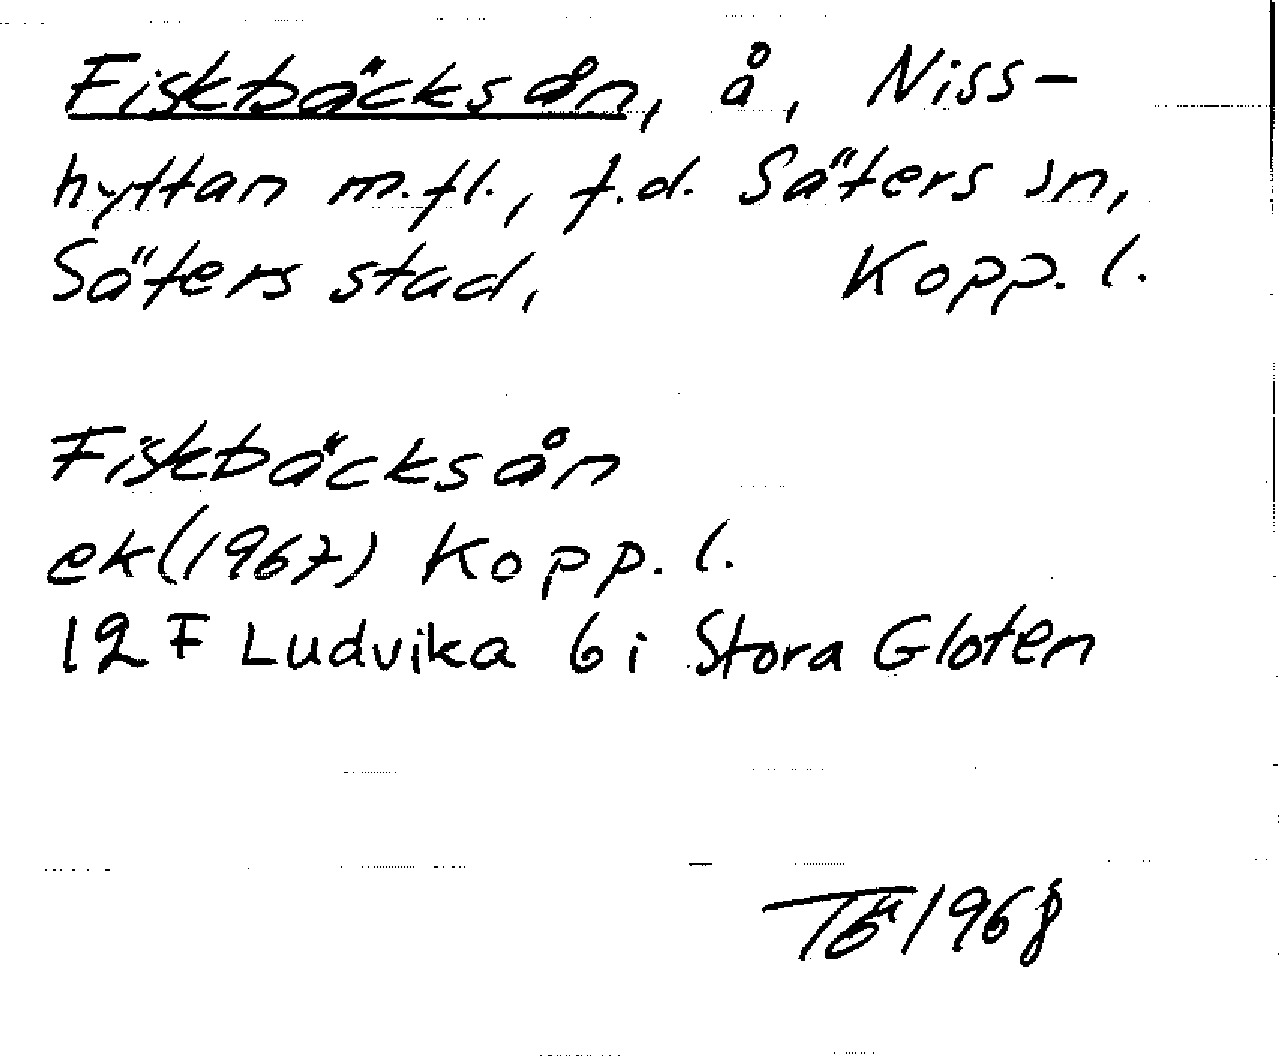 Fiskbäcksån, å, Niss-
hyttan m.fl., f.d. Säters sn,
Säters stad, Kopp. l.
Fiskbäcksån
ek(1967) Kopp. l.
12 F Ludvika 6 i Stora Gloten
1968